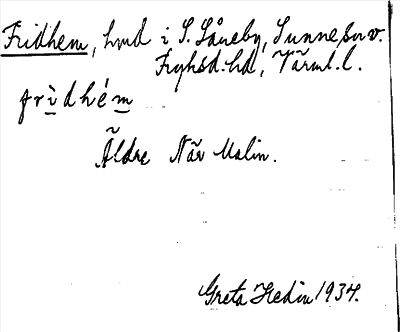 Fridhem, hmd i S. Låneby, Sunne sn v.
Fryksd. hd, Värml. l.
frìdhé m
Äldre När Malin.
Greta Hedin 1934.